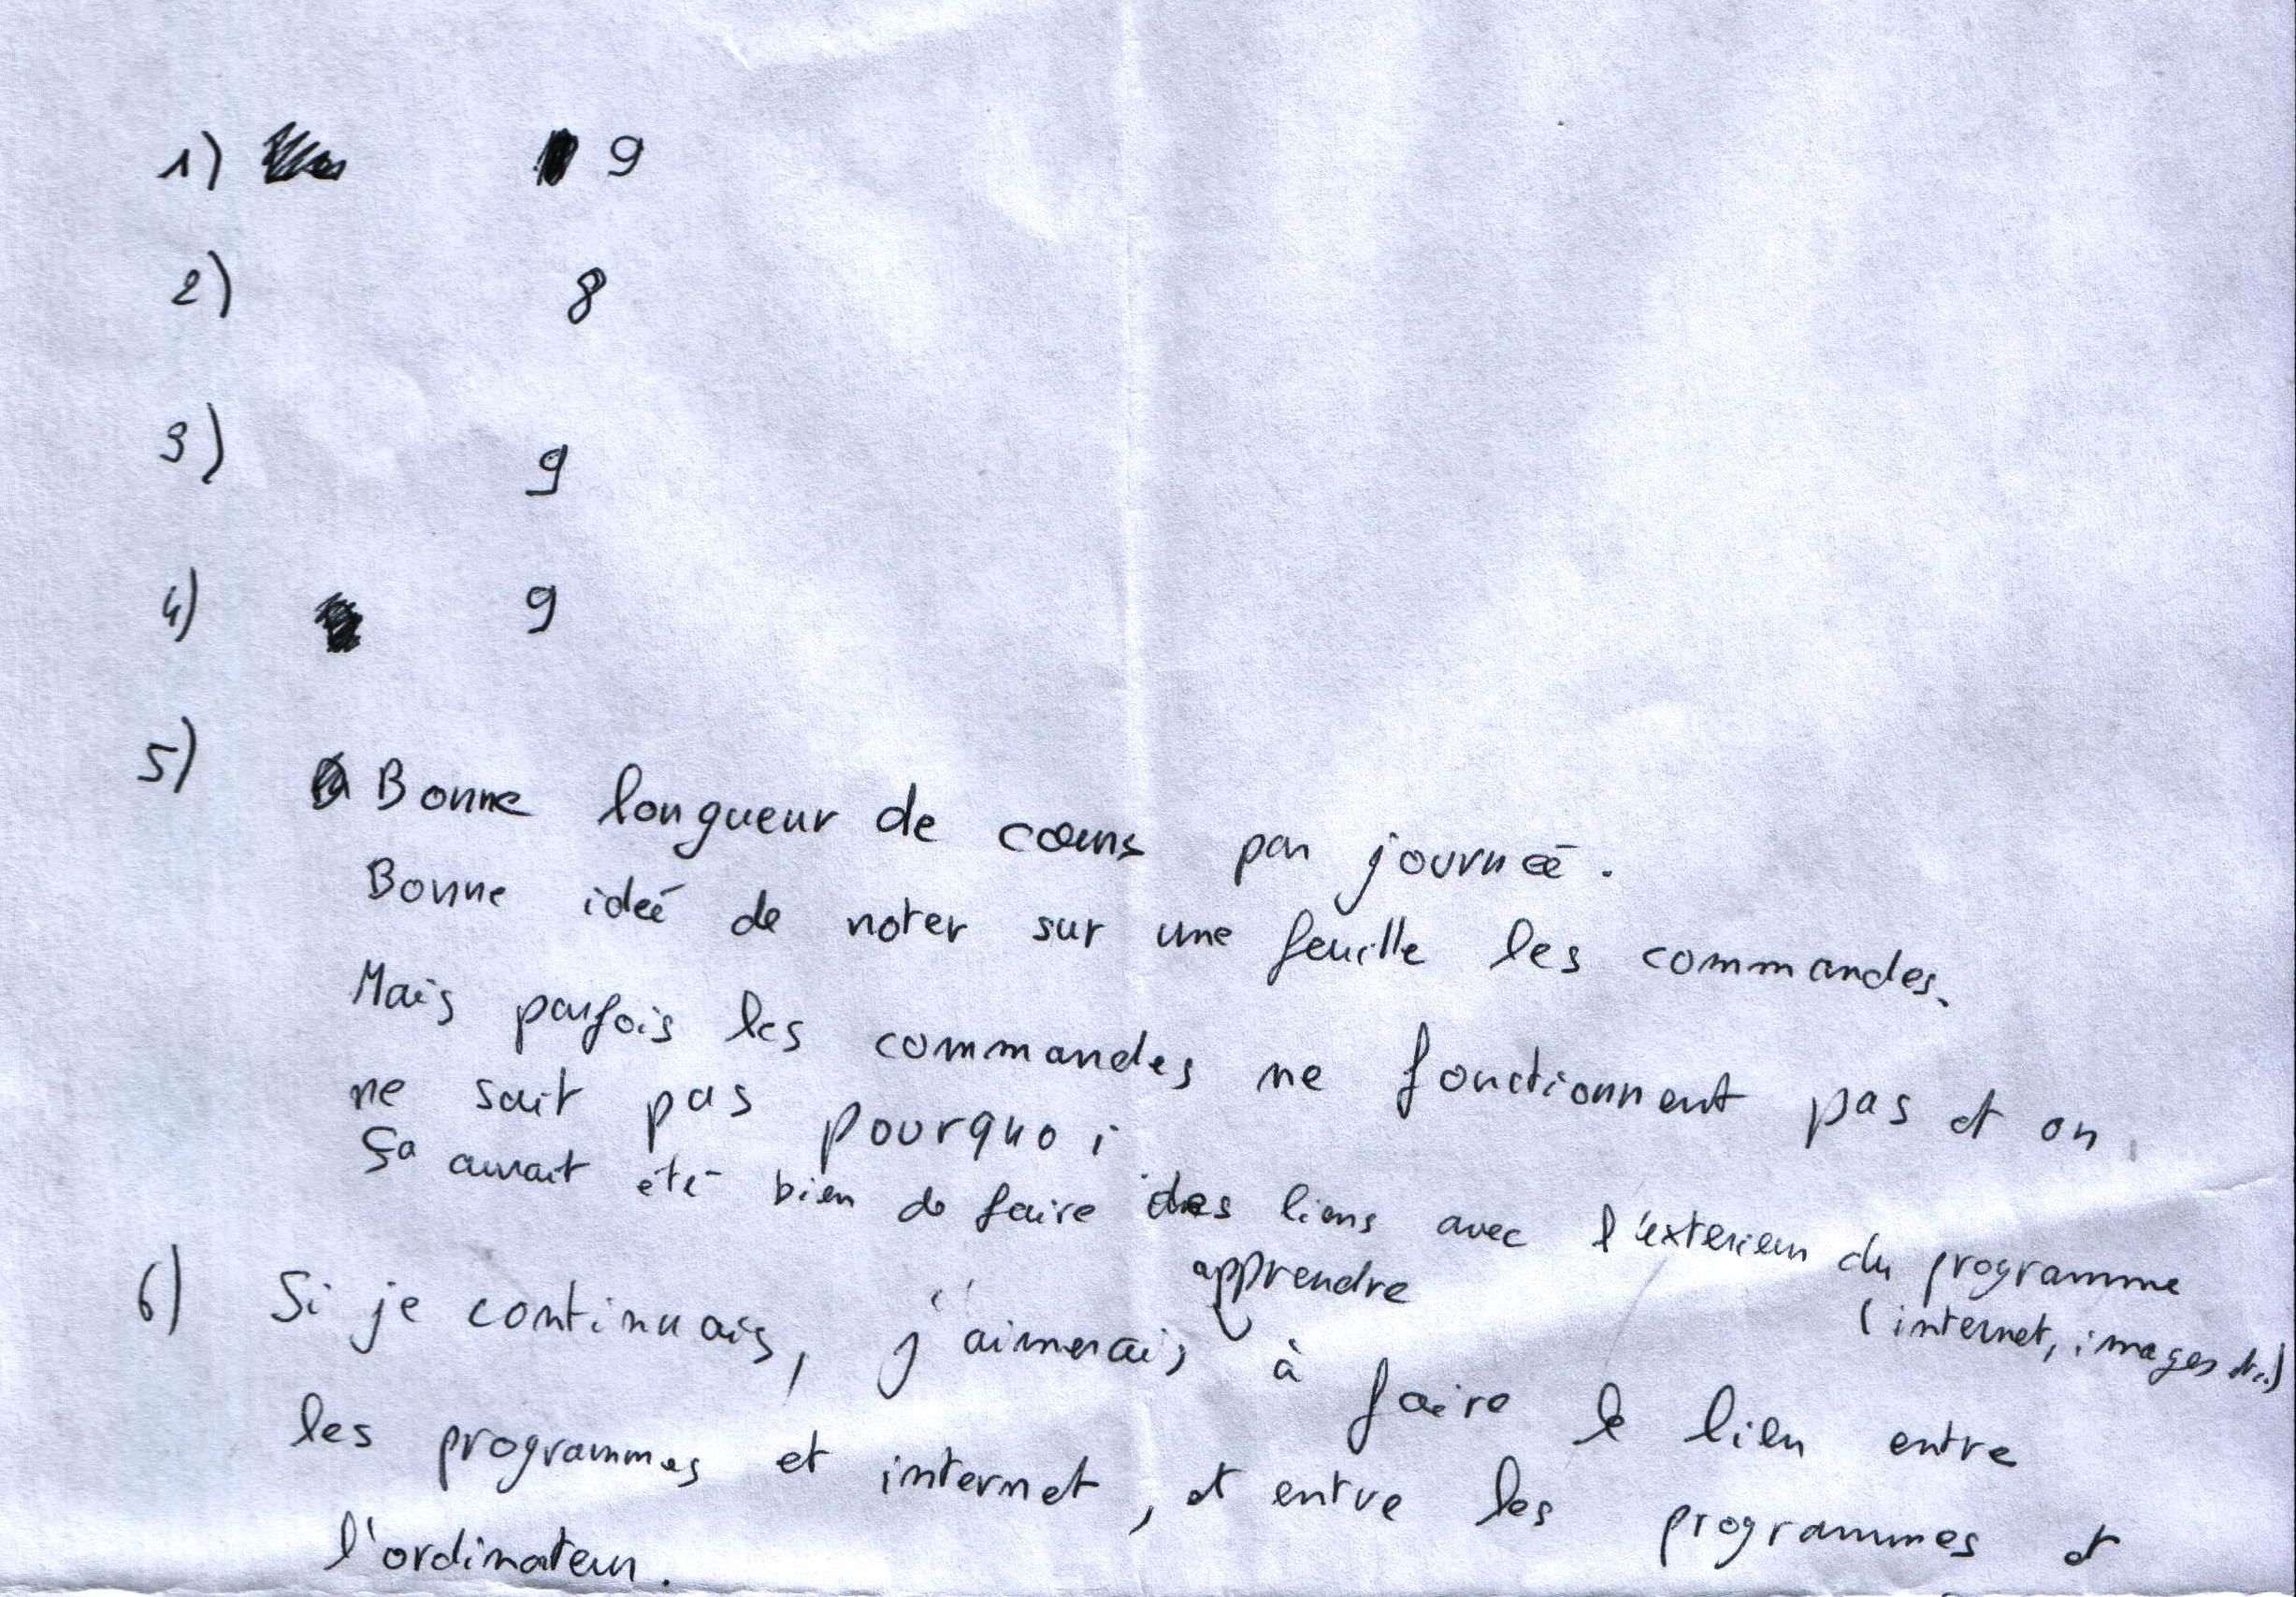 1) 9
2) 8
3) 9
4) 9
5) Bonne longueur de cours par journeé.
Bonne ideé de noter sur une feuille les commandes.
Mais parfois les commandes ne fonctionnent pas et on
ne sait pas pourquoi
Ça aurait été bien de faire des liens avec l'exterieur du programme
(internet, images etc.)
apprendre
6) Si je continuais, j'aimerais à faire le lien entre
les programmes et internet, et entre les programmes et
l'ordinateur.